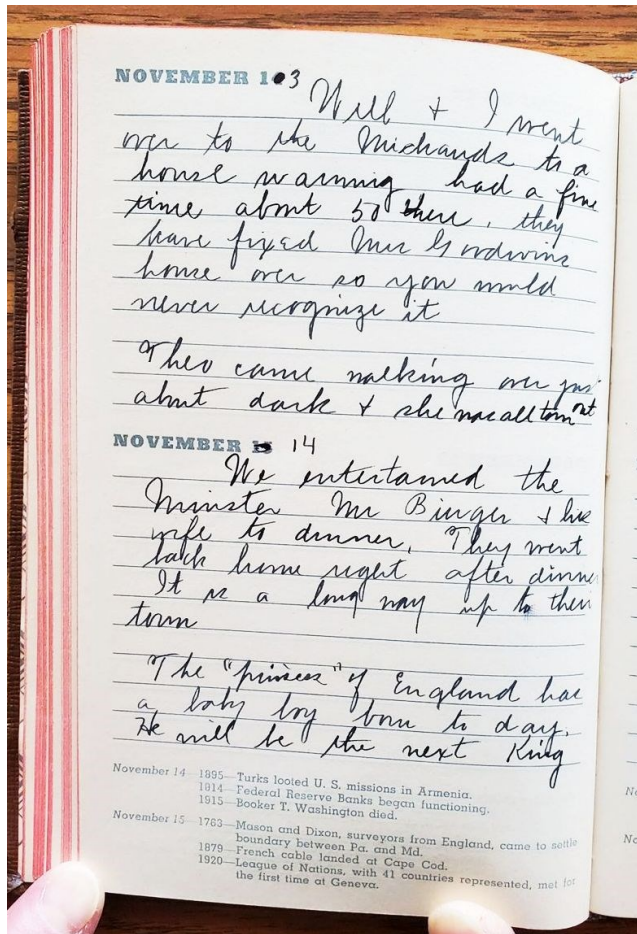 NOVEMBER 13
Will & I went
over to the Michauds to a
house warming had a fine
time about 50 there, they
have fixed Mrs Gordwins
house over so you would
never recognize it
Theo came walking over just
about dark & she was all torn out
NOVEMBER 14
We entertained the
Minster Mr Binger & his
wife to dinner. They went
back home right after dinner
It is a long way up to their
town
The "princes" of England has
a baby boy born to day.
He will be the next King
November 14 1895—Turks looted U. S. missions in Armenia.
1914—Federal Reserve Banks began functioning.
1915—Booker T. Washington died.
November 15 1763—Mason and Dixon, surveyors from England, came to settle
boundary between Pa. and Md.
1879—French cable landed at Cape Cod.
1920—League of Nations, with 41 countries represented, met for
the first time at Geneva.